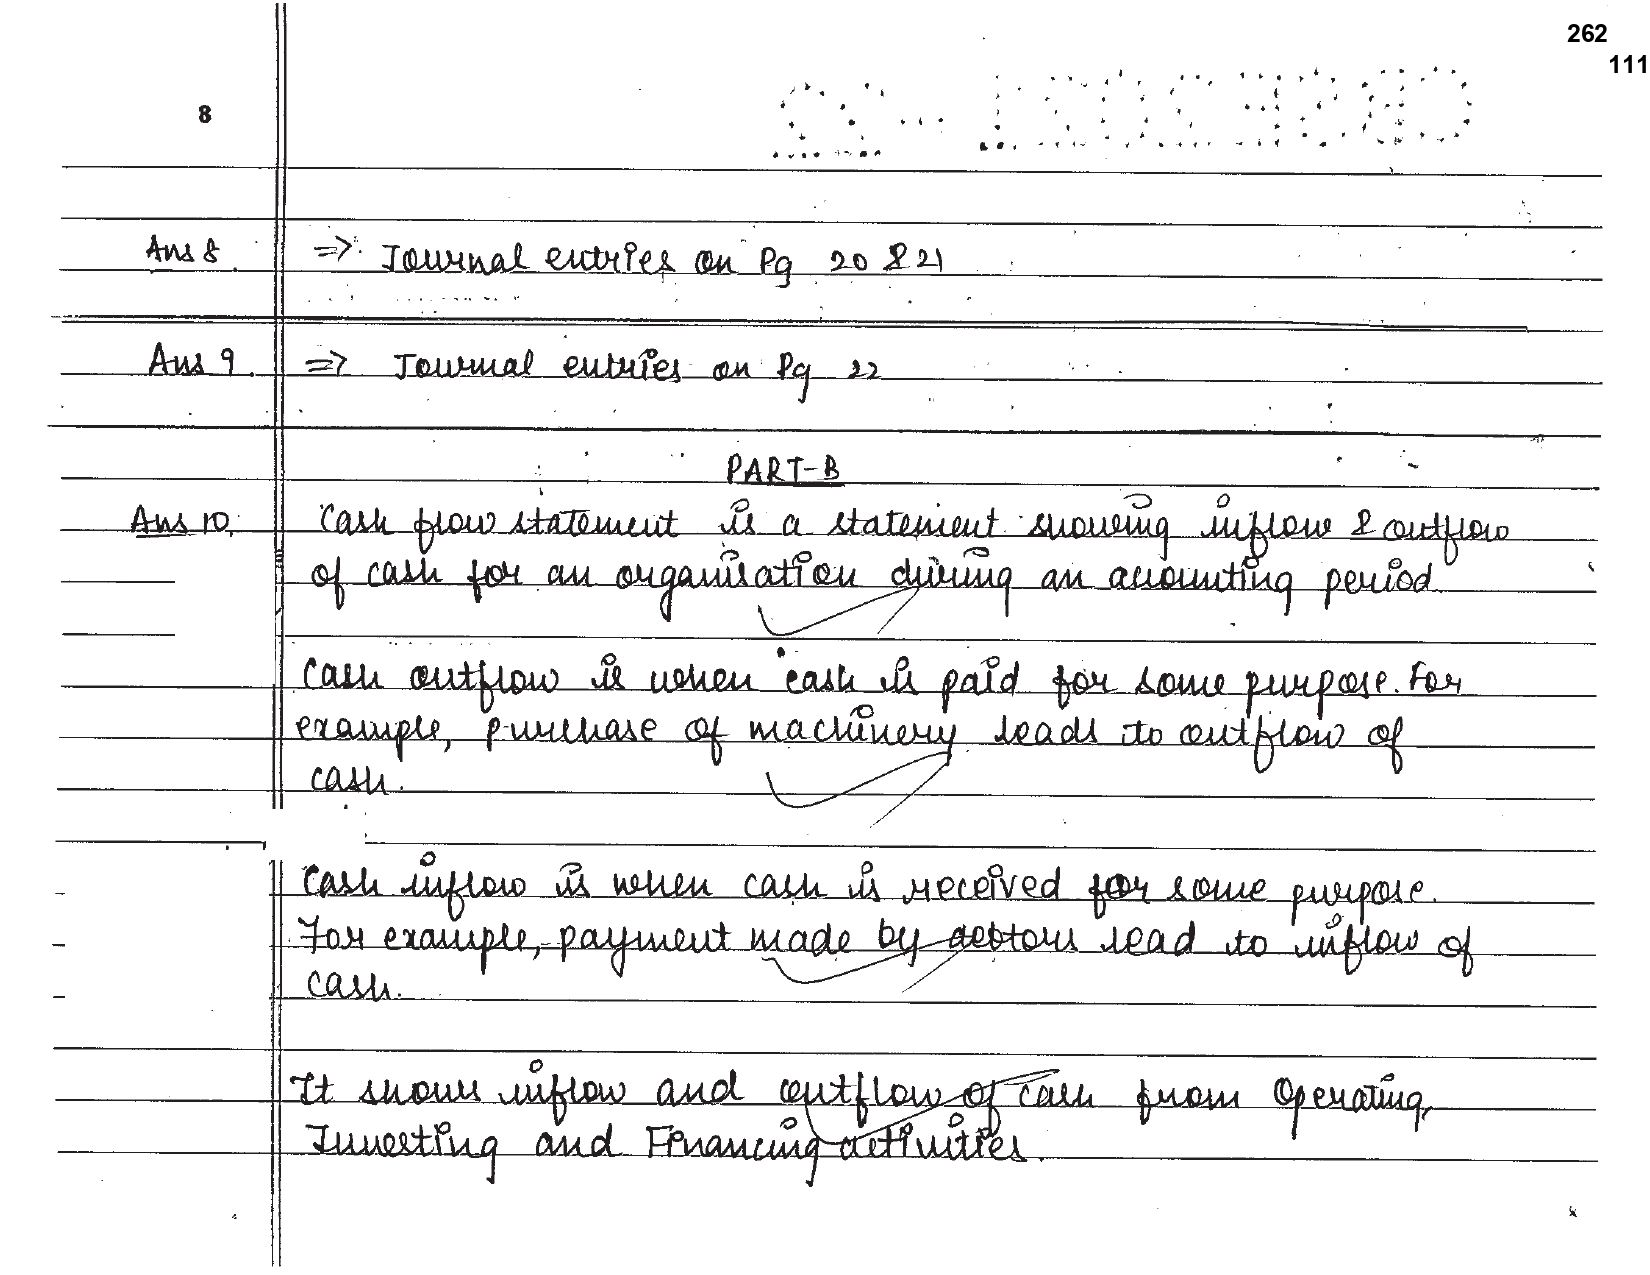 262
111
8
Ans 8 => Journal entries on Pg 20 & 21
Ans 9. => Journal entries on Pg 22
PART-B
Ans 10. Cash flow statement is a statement showing inflow & outflow
of cash for an organisation during an accounting period.
Cash outflow is when cash is paid for some purpose. For
example, purchase of machinery leads to outflow of
cash.
Cash inflow is when cash is received for some purpose.
For example, payment made by debtors lead to inflow of
cash.
It shows inflow and outflow of cash from Operating,
Investing and Financing activities.